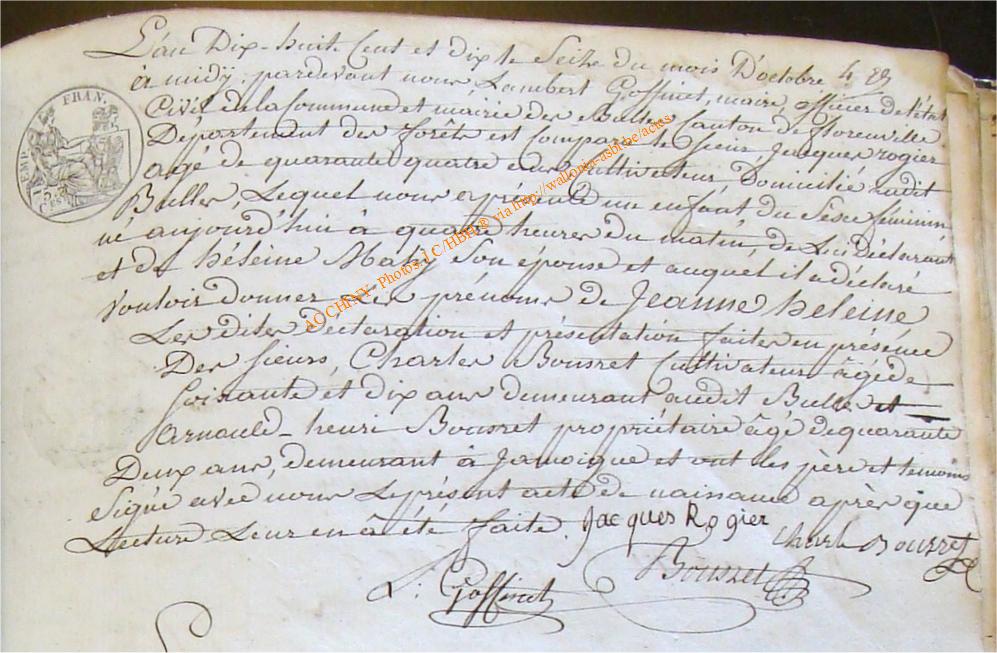 L'an Dix-huit Cent et dix le Seize du mois D'octobre,
à midÿ pardevant nous Lambert Goffinet, maire, officier de l'état
Civil de la Commune et mairie des Bulles Canton de florenville
Département des forêts est Comparu le Sieur, Jacques rogier
agé de quarante quatre ans Cultivateur Domicilié audit
Bulles, Lequel nous a présenté un enfant du Sexe féminin
né aujourd'hui à quatre heures du matin, de Lui Déclarant
et de héleine Son épouse et auquel il a déclaré
vouloir donner les prénoms de Jeanne heleine,
Les dites Declaration et présentation faites en présence
Des Sieurs, Charles Bousret Cultivateur âgé de
Soixante et dix ans demeurant audit Bulles et
arnould-henri Bousret propriétaire âgé de quarante
Deux ans, demeurant à Jamoigne et ont les père et temoins
Signé avec nous Le présent acte de naissance après que
Lecture Leur en à été faite. Jacques Rogier
Bousret
L. Goffinet
FRAN.
AOCHINY - Photos JC/HBH © via http://wallonia-asbl.be/actes